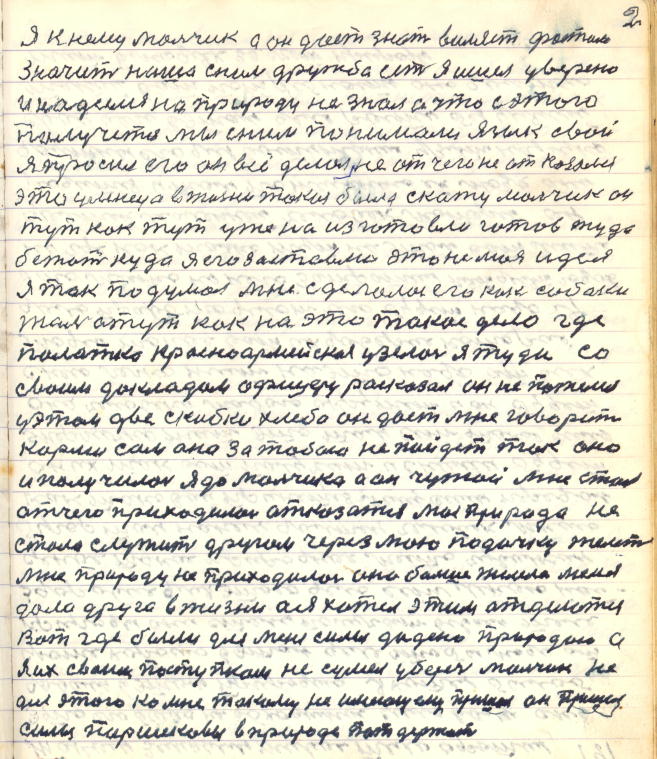 2
я к нему молчик а он дает знат виляет фостом
значит наша сним дружба ест я ишел уверено
и надеемя на природу не знал а что с этого
палучется мы сним понимали язык свой
я просил его он всё делал не от чего не от казался
это умнеца в жизни такая была скажу молчик он
тут как тут уже на изготовли готов туда
бежат куда я его заставлю это не моя идея
я так подумал мне сделалос его как собаки
жал а тут как на это такое дело где
палатка красноармейская увелач я туда со
своим докладом офицеру расказал он не пожелел
уэтом две скибки хлеба он дает мне говорит
корми сам она за табою не пойдет так оно
и получилос я до молчика а он чужой мне стал
отчего приходилос отказатся моя природа не
стала служит другом через мою подачку жалет
мне природу не приходилос она болше жыла меня
дала друга в жизни а я хотел этим отделатся
вот где были для меня силы дадено природаю а
я их своим поступкам не сумел уберечь молчик не
для этого ко мне такому не имеющему пришол он пришол
силы паршековы в природе пот держат